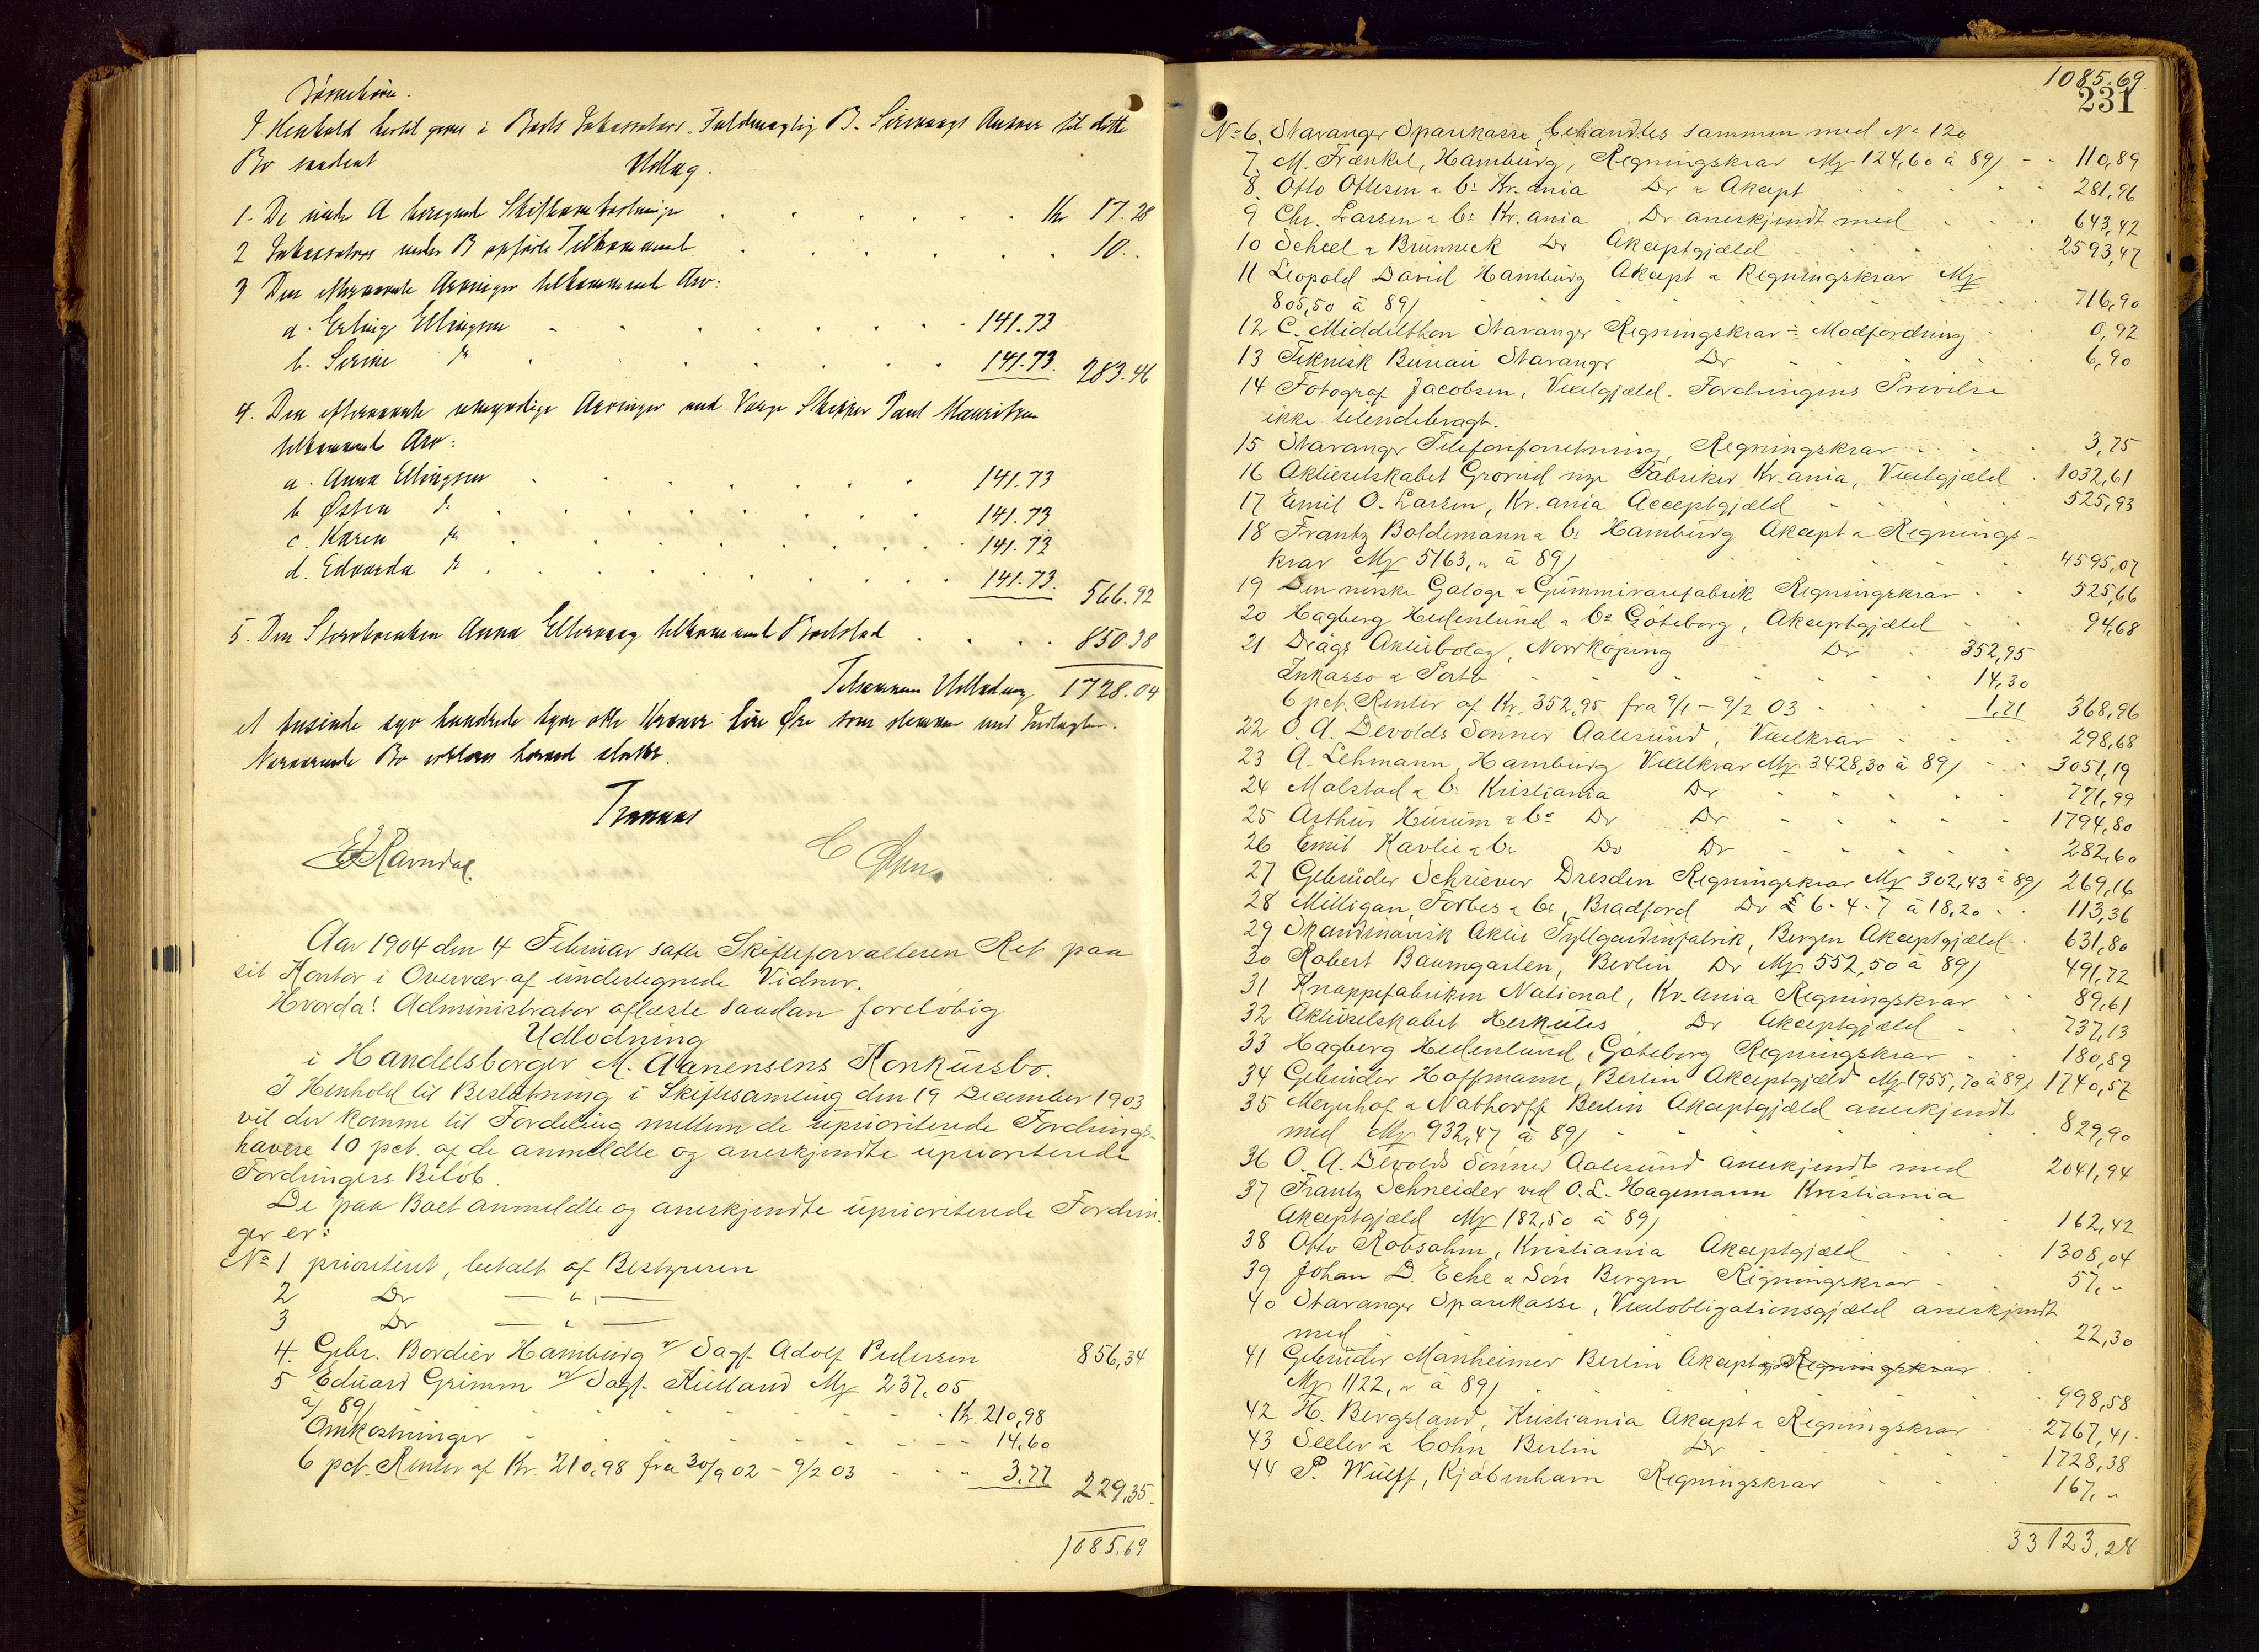 I Henhold hertil gives i Boets Inkassators, Fuldmægtig B. Sirevaags Ansvar til dette
Bo saadant Udlæg.
1. De under A beregnede Skifteomkostninger Kr 17.28
2 Inkassators under B opførte Tilkommende 10..
3 Den efternævnte Arvinger tilkommende Arv:
a. Erling Ellingsen 141.73
b. Serine Dr 141.73. 283.46
4. Den efternævnte umyndige Arvinger ved Værge Skipper Paul Mauritsen
tilkommende Arv:
a. Anna Ellingsen 141.73
b Østen Dr 141.73
c. Karen Dr 141.73
d. Edvarda Dr 141.73. 566.92
5. Den Anna tilkommende Boslod 850.38
Tilsammen Udlodning 1728.04
et tusinde syv hundrede tyve otte Kroner fire Øre som stemmer med Indtægten.
Nærværende Bo erklæres hermed sluttet.
E Ravndal.
Aar 1904 den 4 Februar satte Skifteforvalteren Ret paa
sit Kontor i Overvær af undertegnede Vidner.
Hvorda! Administrator oflæste saadan foreløbig
Udlodning
i Handelsborger M. Aanensens Konkursbo.
I Henhold til Beslutning i Skiftesamling den 19 December 1903
vil der komme til Fordeling mellem de uprioriterede Fordrings-
havere 10 pct. af de anmeldte og anerkjendte uprioriterede
Fordringers Beløb.
De paa Boet anmeldte og anerkjendte uprioriterede Fordrin-
ger er:
No 1 prioriteret, betalt af Bestyreren
2 Dr — " —
3 Dr — " —
4. Gebr. Bordier Hamburg v/ Sagf. Adolf Pedersen 856,34
5 Eduard Grimm v/ Sagf. Kielland Mk 237.05
à 89/ Kr. 210,98
Omkostninger 14.60
6 pct. Renter af Kr. 210,98 fra 30/9 02 - 9/2 03 3.77 229,35.
1085.69
1085.69
231
No 6. Stavanger Sparekasse, behandles sammen med No 120
7. M. Frænkel, Hamburg, Regningskrav Mk 124,60 à 89/ 110,89
8 Otto Ottesen & Co Kr.ania Dr & Akcept 281,96
9 Chr. Larsen & Co Kr.ania Dr anerkjendt med 643,42
10 Scheel & Brünneck Dr Akceptgjæld 2593,47
11 Leopold David Hamburg Akcept & Regningskrav Mk
805,50 à 89/ 716,90
12 C. Middelthon Stavanger Regningskrav ÷ Modfordring 0,92
13 Teknisk Bureau Stavanger Dr 6,90
14 Fotograf Jacobsen, Vexelgjæld. Fordringens Prøvelse
ikke tilendebragt.
15 Stavanger Telefonforretning, Regningskrav 3,75
16 Aktieselskabet Grorud nye Fabriker Kr.ania, Vexelgjæld 1032,61
17 Emil O. Larsen, Kr.ania Acceptgjæld 525,93
18 Frantz Boldemann & Co Hamburg Akcept & Regnings-
krav Mk 5163," à 89/ 4595,07
19 Den norske Galoge & Gummivarefabrik Regningskrav 525,66
20 Hagberg Hedenlund & Co Göteborg, Akceptgjæld 94,68
21 Drägs Aktiebolag, Norrköping Dr 352,95
Inkasso & Porto 14,30
6 pct. Renter af Kr. 352,95 fra 9/1 - 9/2 03 1,71 368,96
22 O. A. Devolds Sønner Aalesund, Vexelkrav 298,68
23 A. Lehmann, Hamburg Vexelkrav Mk 3428,30 à 89/ 3051,19
24 Molstad & Co Kristiania Dr 771,99
25 Arthur Husum & Co Dr Dr 1794,80
26 Emil Kavlie & Co Do Dr 282,60
27 Gebrüder Schriever Dresden Regningskrav Mk 302,43 à 89/ 269,16
28 Milligan, Forbes & Co, Bradford Dr £ 6-4-7 à 18,20 113,36
29 Skandinavisk Aktie Tyllgardinfabrik, Bergen Akceptgjæld 631,80
30 Robert Baumgarten, Berlin Dr Mk 552,50 à 89/ 491,72
31 Knappefabriken National, Kr.ania Regningskrav 89,61
32 Aktieselskabet Herkules, Dr Akceptgjæld 737,13
33 Hagberg Hedenlund, Göteborg Regningskrav 180,89
34 Gebrüder Hoffmann, Berlin Akceptgjæld Mk 1955,70 à 89/ 1740,57
35 Meyerhof & Nathorff Berlin Akceptgjæld anerkjendt
med Mk 932,47 à 89/ 829,90
36 O. A. Devolds Sønner Aalesund anerkjendt med 2041,94
37 Frantz Schneider ved O. L. Hagemann Kristiania
Akceptgjæld Mk 182,50 à 89/ 162,42
38 Otto Robsahm, Kristiania Akceptgjæld 1308,04
39 Johan D. Behe & Søn Bergen Regningskrav 57,-
40 Stavanger Sparekasse, Vexelobligationsgjæld anerkjendt
med 22,30
41 Gebrüder Manheimer Berlin Akcept & Regningskrav
Mk 1122," à 89/ 998,58
42 H. Bergsland, Kristiania Akcept & Regningskrav 2767,41
43 Seeler & Cohn Berlin Dr 1728,38
44 P. Wulff, Kjøbenhavn Regningskrav 167,-
33123,28